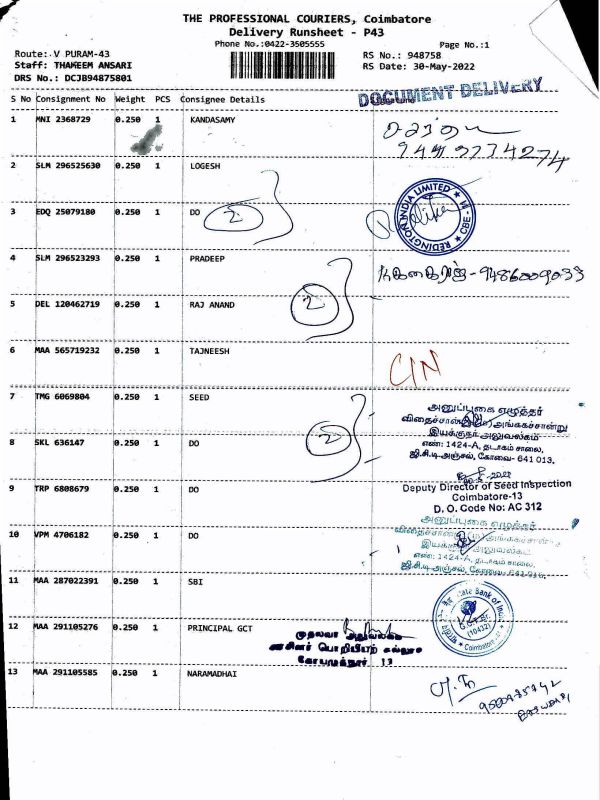 THE PROFESSIONAL COURIERS, Coimbatore
Delivery Runsheet - P43
Phone No.:0422-3505555
Page No.:1
Route: V PURAM-43
RS No.: 948758
Staff: THAKEEM ANSARI
RS Date: 30-May-2022
DRS No.: DCJB94875801
DOCUMENT DELIVERY
S No Consignment No Weight PCS Consignee Details
1 MNI 2368729 0.250 1 KANDASAMY
2 SLM 296525630 0.250 1 LOGESH
3 EDQ 25079180 0.250 1 DO 2
REDINGTON INDIA LIMITED CBE
4 SLM 296523293 0.250 1 PRADEEP
2
5 DEL 120462719 0.250 1 RAJ ANAND
6 MAA 565719232 0.250 1 TAJNEESH
CIN
7 TMG 6069804 0.250 1 SEED
அனுப்புகை எழுத்தர்
அங்ககச்சான்று
இயக்குநர் அலுவலகம்
எண்: 1424-A, தடாகம் சாலை,
ஜி.சி.டி அஞ்சல், கோவை- 641 013.
8 SKL 636147 0.250 1 DO 2
9 TRP 6808679 0.250 1 DO
Deputy Director of Seed Inspection
Coimbatore-13
D. O. Code No: AC 312
10 VPM 4706182 0.250 1 DO
அனுப்புகை எழுத்தர்
இயக்குநர் அலுவலகம்
எண்: 1424-A, தடாகம் சாலை,
ஜி.சி.டி அஞ்சல், கோவை- 641 013.
11 MAA 287022391 0.250 1 SBI
State Bank of India
(10432)
Coimbatore
12 MAA 291105276 0.250 1 PRINCIPAL GCT
முதல்வர் அலுவலகம்
அரசினர் பொறியியற் கல்லூரி
கோயமுத்தூர் 13
13 MAA 291105585 0.250 1 NARAMADHAI